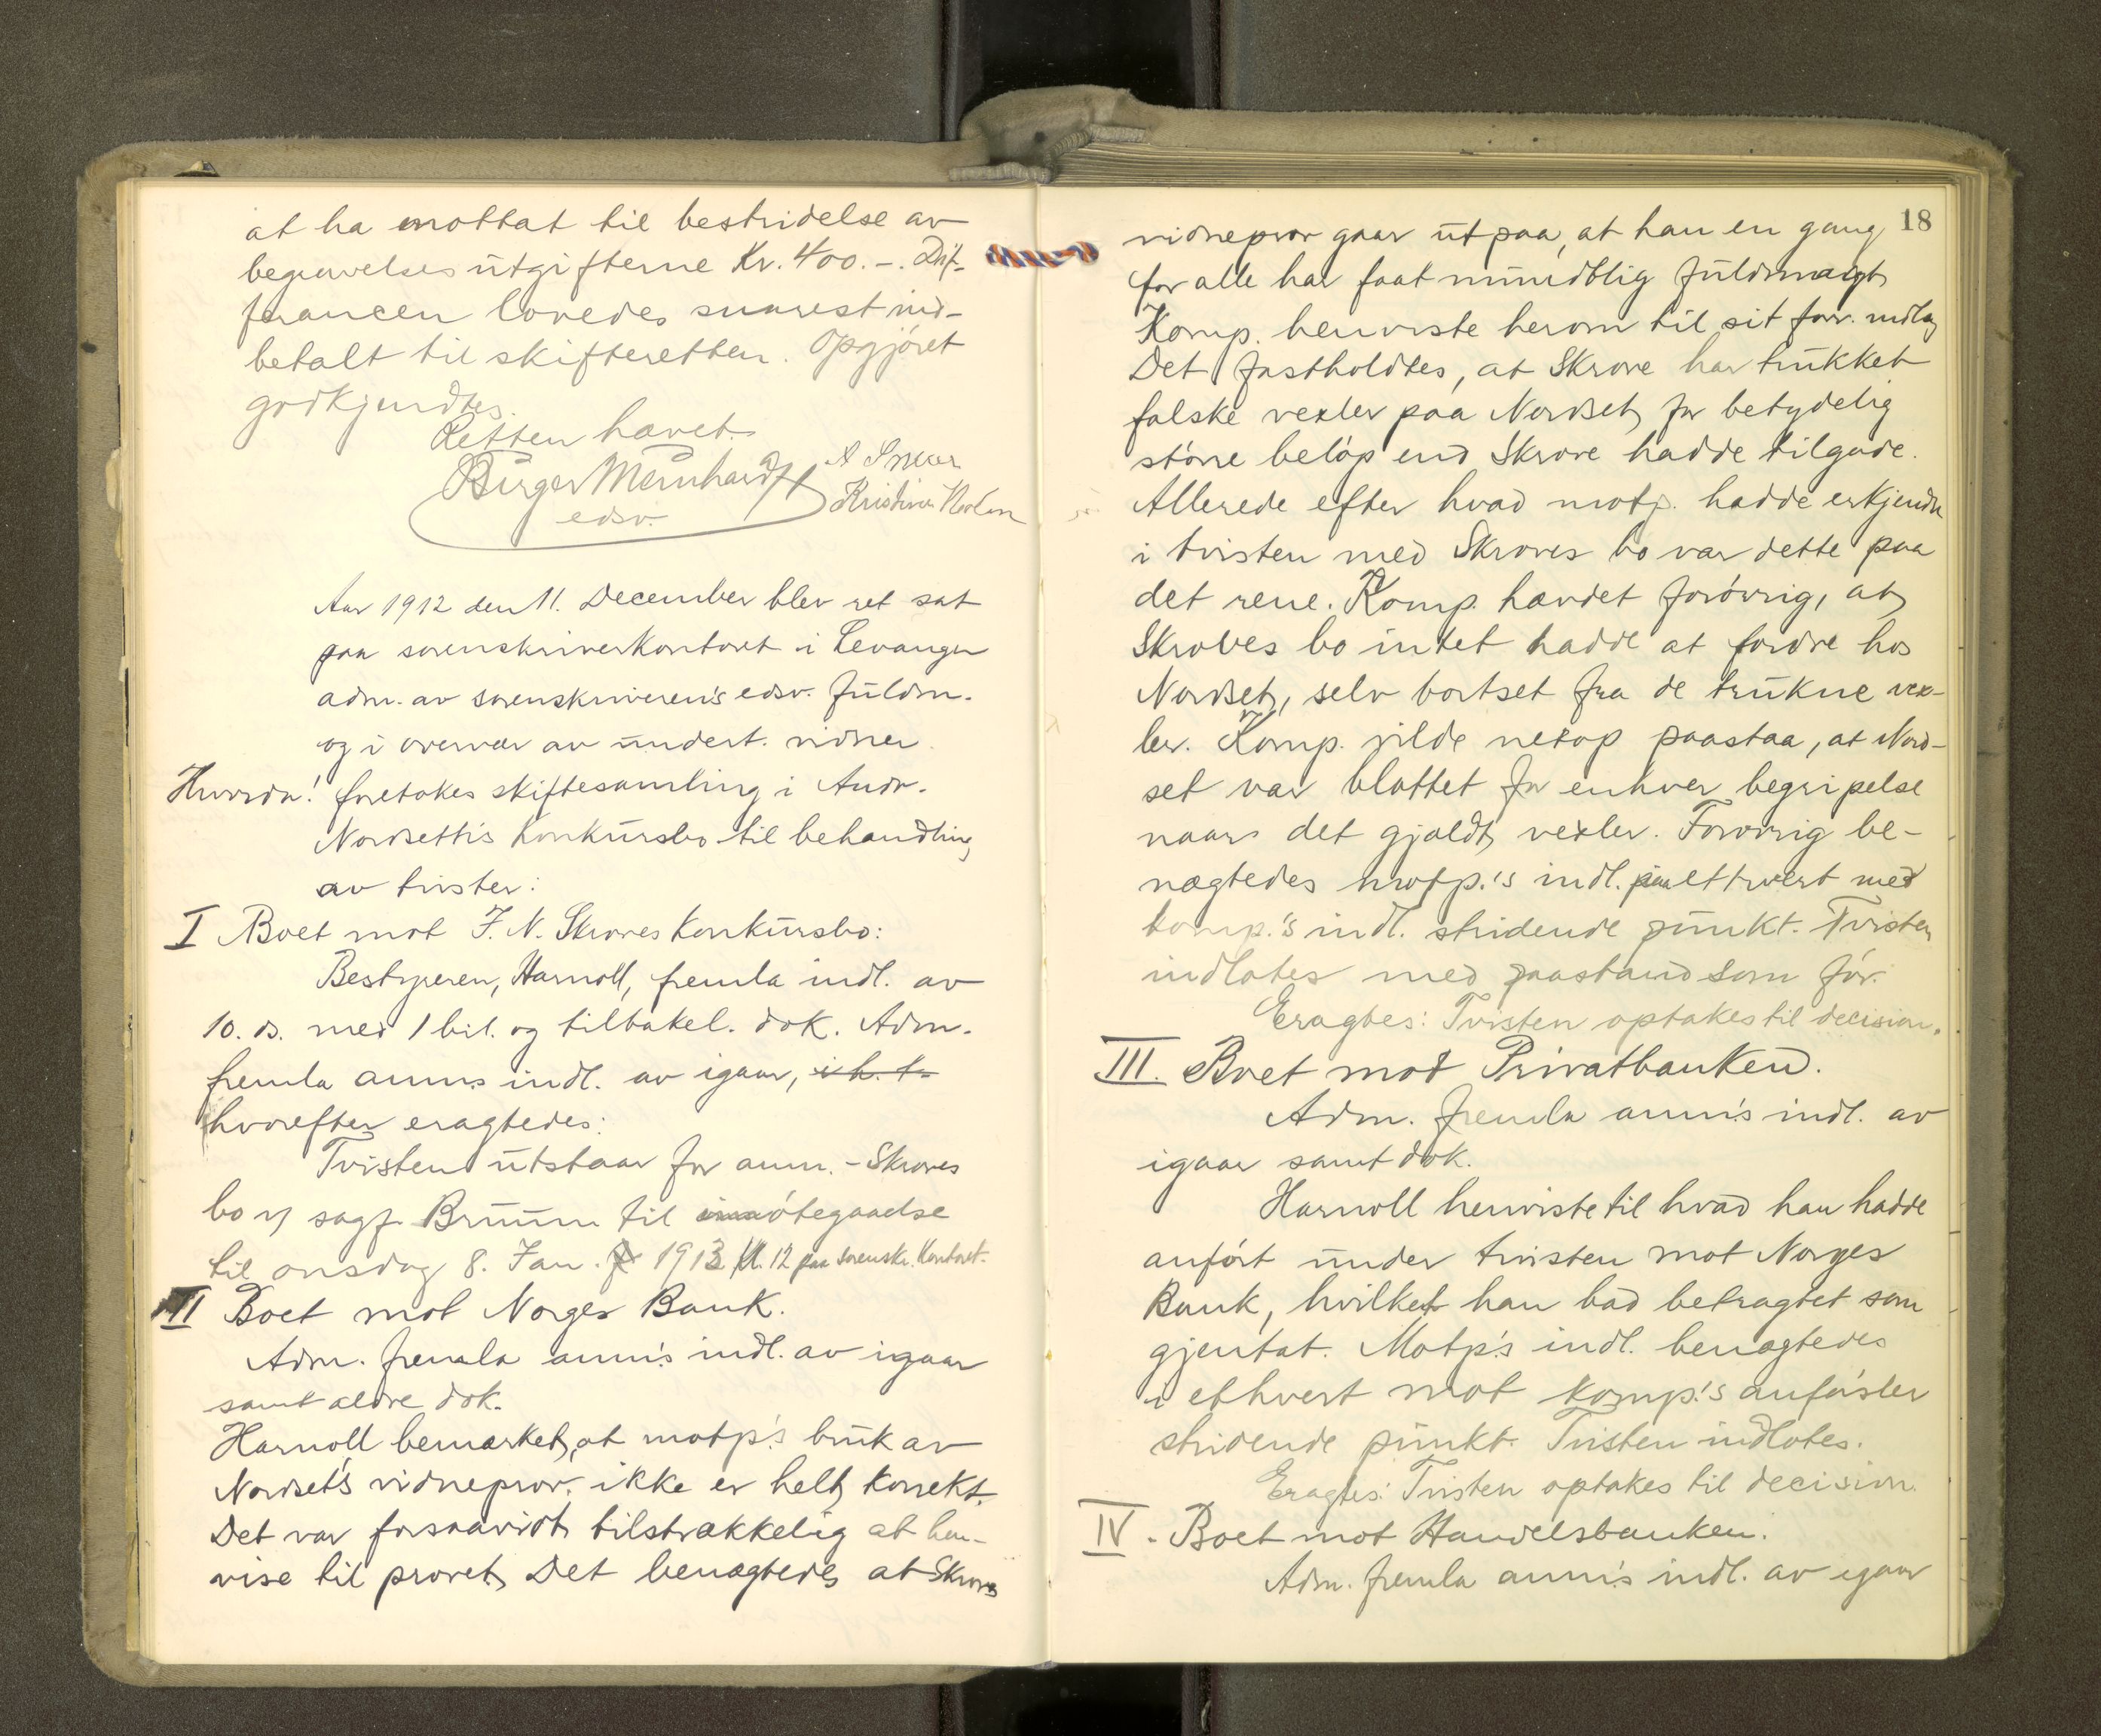 at ha mottat til bestridelse av
begravelsesutgifterne Kr. 400.-. Dif-
ferancen lovedes snarest ind-
betalt til skifteretten. Opgjøret
godkjendtes.
Retten hævet.
Birger Meinhardt
edsv.
Kristine
Aar 1912 den 11. December blev ret sat
paa sorenskriverkontoret i Levanger
adm. av sorenskriveren's edsv. fuldm.
og i overvær av undert. vidner.
Hvorda! foretokes skiftesamling i Andr.
Nordsettis konkursbo til behandling
av tvister:
I Boet mot J. N. Skroves konkursbo:
Bestyreren, Harnoll, fremla indl. av
10. ds. med 1 bil. og tilbakel. dok. Adm.
fremla anm.s indl. av igaar, i h. t.
hvorefter eragtedes:
Tvisten utstaar for anm. - Skroves
bo v/ sagf. Bruun til imøtegaaelse
til onsdag 8. Jan. 1913 kl. 12 paa sorenskr. kontoret.
II Boet mot Norges Bank.
Adm. fremla anm's indl. av igaar
samt ældre dok.
Harnoll bemærket, at motp.'s bruk av
Nordset's vidneprov. ikke er helt korrekt.
Det var forsaavidt tilstrækkelig at hen-
vise til provet. Det benægtedes at Skroves
18
vidneprov gaar ut paa, at han en gang
for alle har faat mundtlig fuldmagt.
Komp. henviste herom til sit forr. indlæg
Det fastholdtes, at Skrove har trukket
falske vexler paa Nordset, for betydelig
större beløp end Skrove hadde tilgode.
Allerede efter hvad motp. hadde erkjendt
i tvisten med Skroves bo var dette paa
det rene. Komp. hævdet forøvrig, at
Skroves bo intet hadde at fordre hos
Nordset, selv bortset fra de trukne vex-
ler. Komp. vilde netop paastaa, at Nord-
set var blottet for enhver begripelse
naar det gjaldt vexler. Forøvrig be-
nægtedes motp.'s indl. paa ettvert med
komp.'s indl. stridende punkt. Tvisten
indlotes med paastand som før.
Eragtes: Tvisten optakes til decision.
III. Boet mot Privatbanken.
Adm. fremla anm's indl. av
igaar samt dok.
Harnoll henviste til hvad han hadde
anført under tvisten mot Norges
Bank, hvilket han bad betragtet som
gjentat. Motp's indl. benægtedes
i ethvert mot komp.'s anførsler
stridende punkt. Tvisten indlotes.
Eragtes: Tvisten optakes til decision.
IV. Boet mot Handelsbanken.
Adm. fremla anm's indl. av igaar